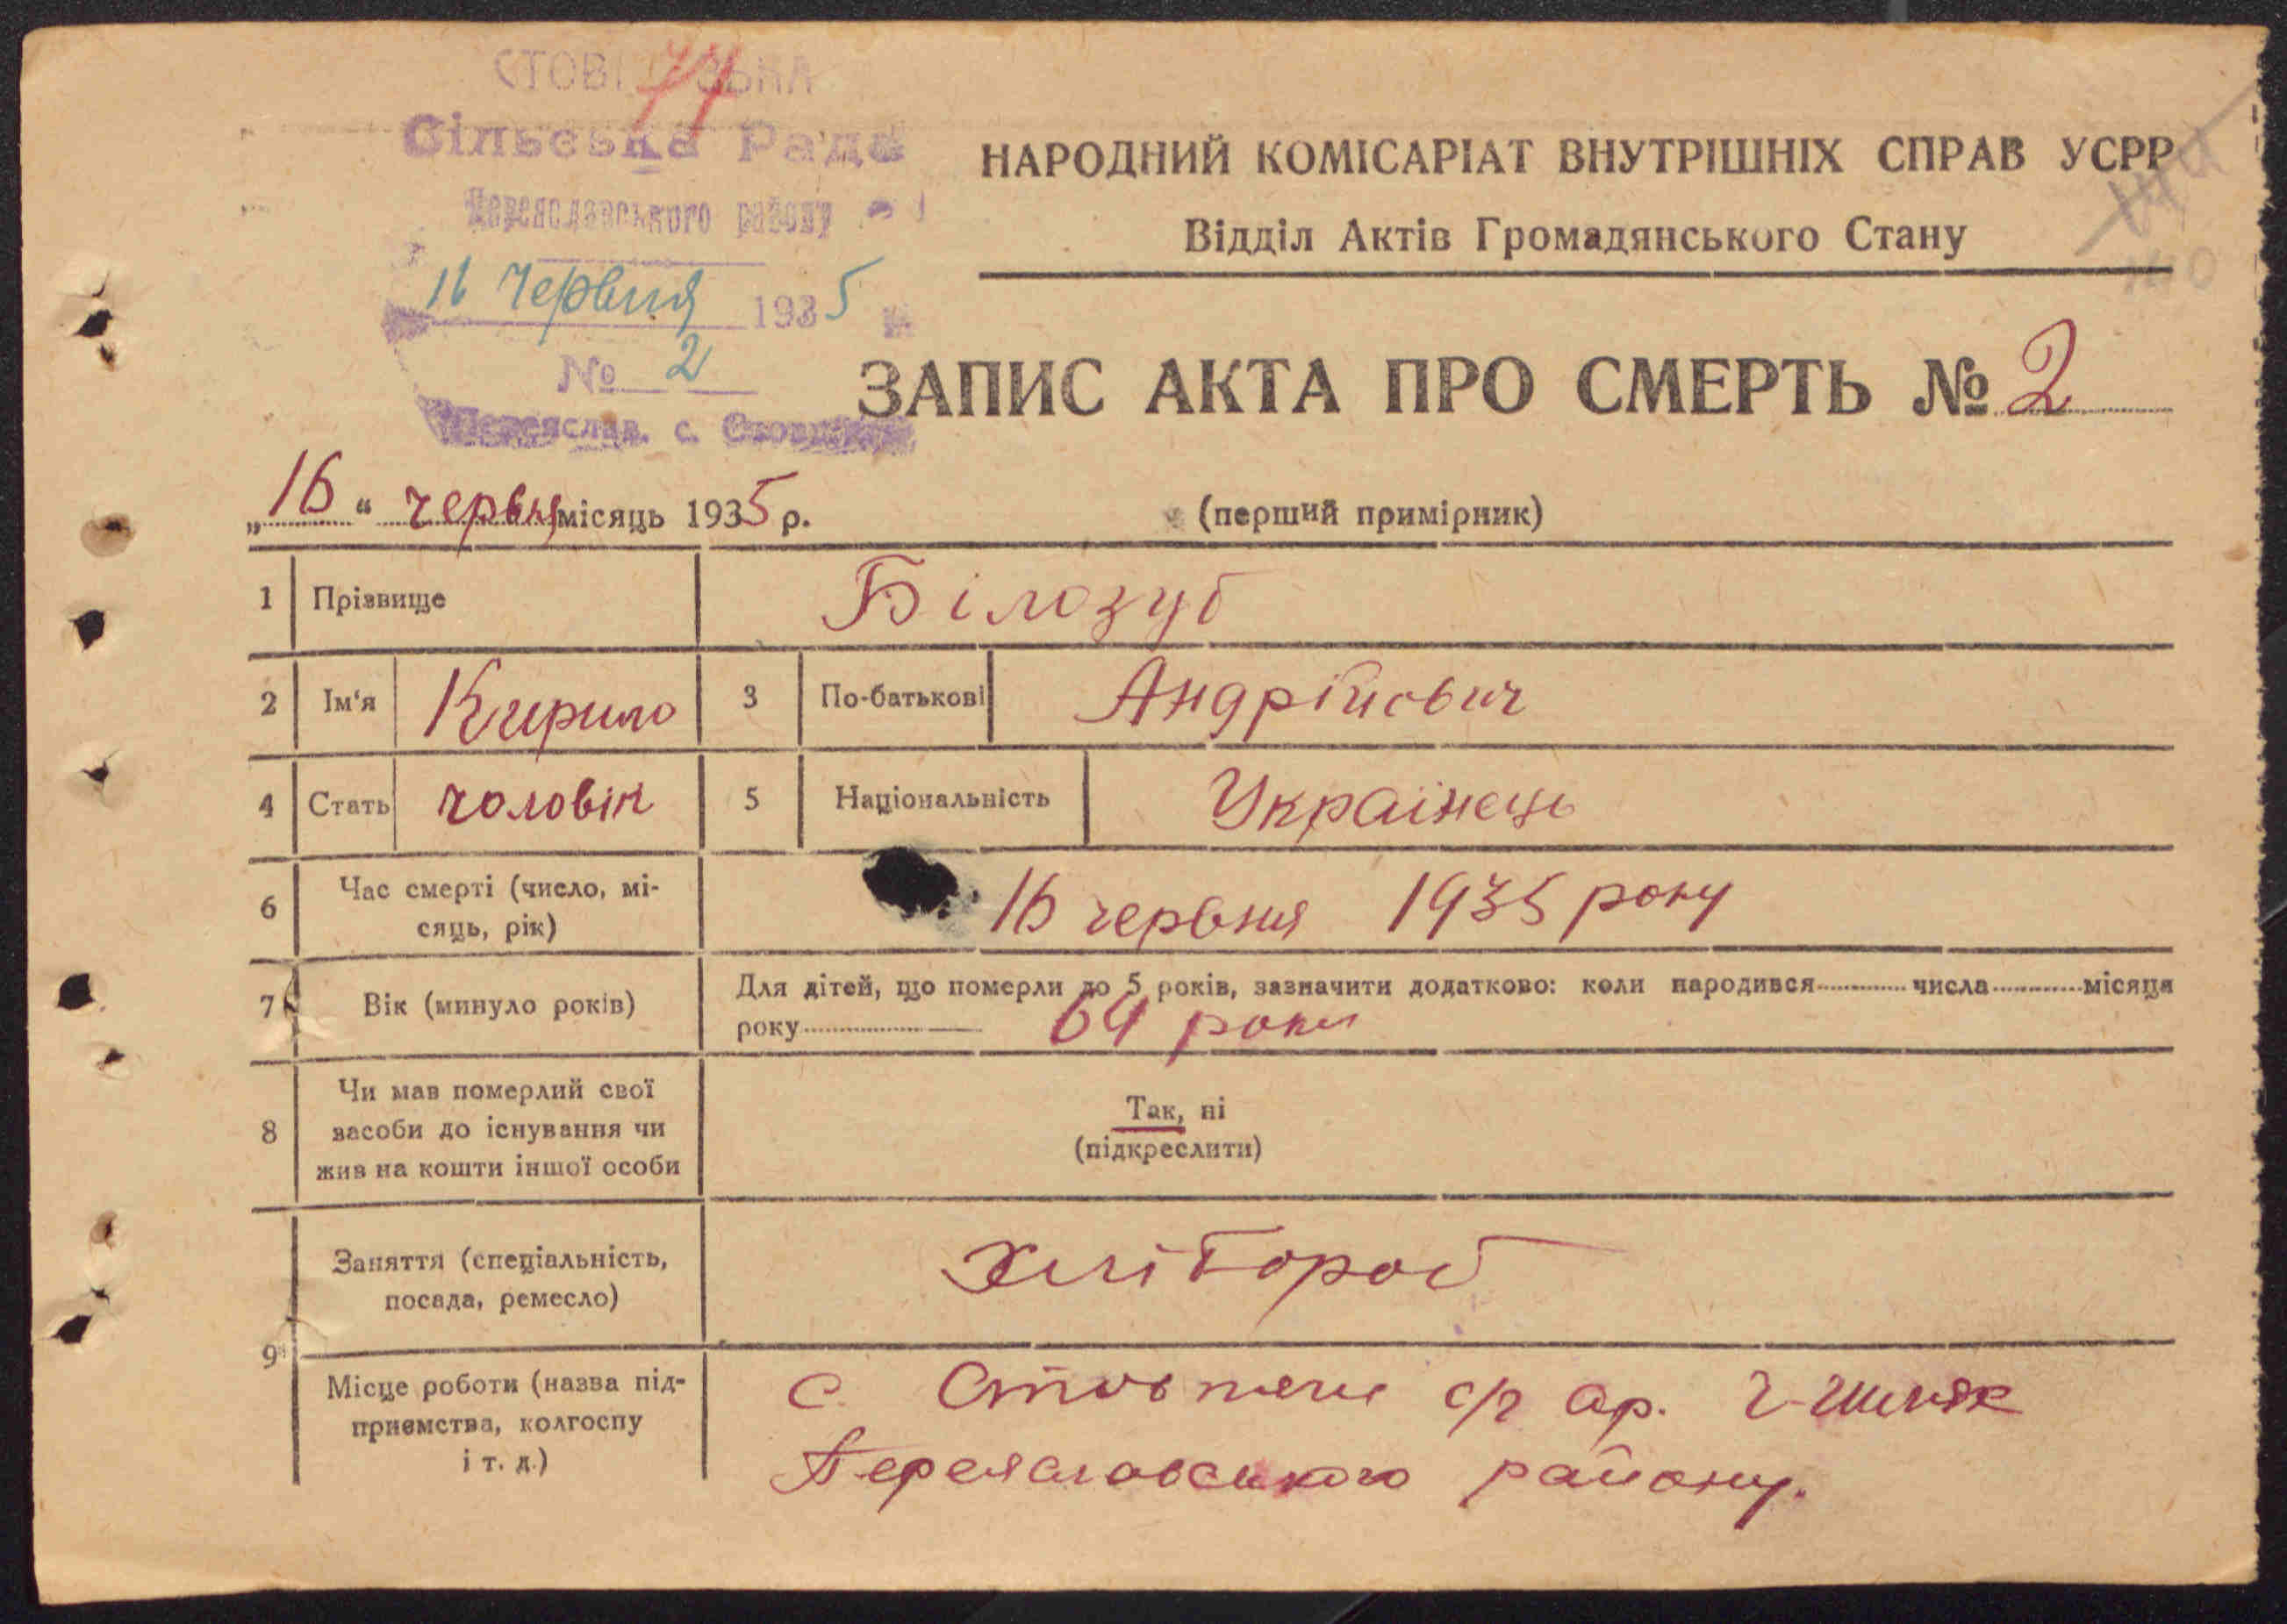 77
Сільська Рада
Переяславського району
16 Червня 1935
№ 2
Переяслав. с.
НАРОДНИЙ КОМІСАРІАТ ВНУТРІШНІХ СПРАВ УСРР
Відділ Актів Громадянського Стану
ЗАПИС АКТА ПРО СМЕРТЬ № 2
„16“ червня місяць 1935 р.
(перший примірник)
1 Прізвище Білозуб
2 Ім'я Кирило 3 По-батькові Андрійович
4 Стать чоловік 5 Національність Українець
6 Час смерті (число, мі-
сяць, рік)
16 червня 1935 року
7 Вік (минуло років)
Для дітей, що померли до 5 років, зазначити додатково: коли народився числа місяця
року 64 роки
8 Чи мав померлий свої
засоби до існування чи
жив на кошти іншої особи
Так, ні
(підкреслити)
9 Заняття (спеціальність,
посада, ремесло)
Хлібороб
Місце роботи (назва під-
приємства, колгоспу
і т. д.)
с. Стовпяги с/г ар. Ч-Шлях
Переяславського району.